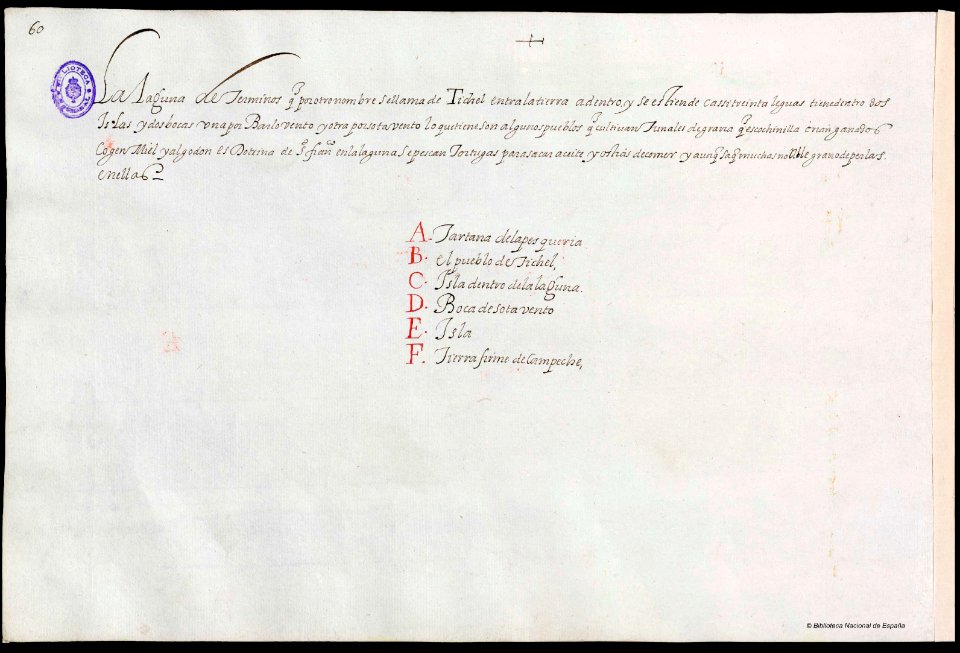 60
La Laguna de Terminos q̃ por otro nombre se llama de Tichel entra la tierra adentro, y se estiende cassi treinta leguas tiene dentro dos
Islas y dos bocas una por Barlovento y otra por sotavento lo que tiene son algunos pueblos q̃ cultivan Tunales de grana q̃ es cochinilla crian ganados
Cogen Miel y algodon es Dotrina de s. fran.co en la laguna se pescan Tortugas para sacar aceite, y ostias de comer y aunq̃ saq̃ muchas no grano de perlas.
en ellas
A. Tartana de la pesqueria
B. el pueblo de Tichel,
C. Isla dentro de la laguna.
D. Boca de sotavento
E. Isla
F. Tierra firme de Campeche,
© Biblioteca Nacional de España